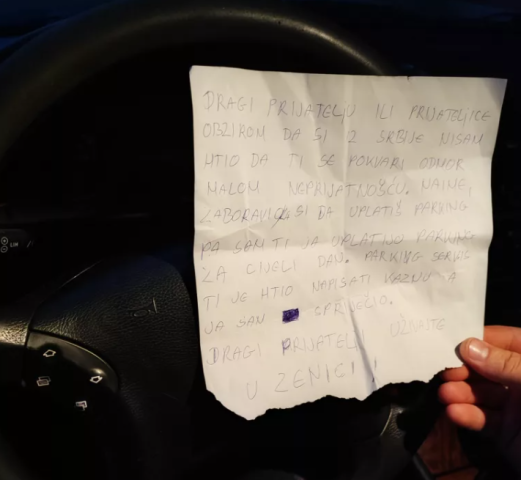 DRAGI PRIJATELJU ILI PRIJATELJICE
OBZIROM DA SI Z SRBIJE NISAM
HTIO DA TI SE POKVARI ODMOR
MALOM NEPRIJATNOŠĆU. NAIME,
ZABORAVIO SI DA UPLATIŠ PARKING
PA SAM TI JA UPLATIO PARKING
ZA CIJELI DAN. PARKING SERVIS
TI JE HTIO NAPISATI KAZNU A
JA SAM SPRIJEČIO.
DRAGI PRIJATELJI UŽIVAJTE
U ZENICI!